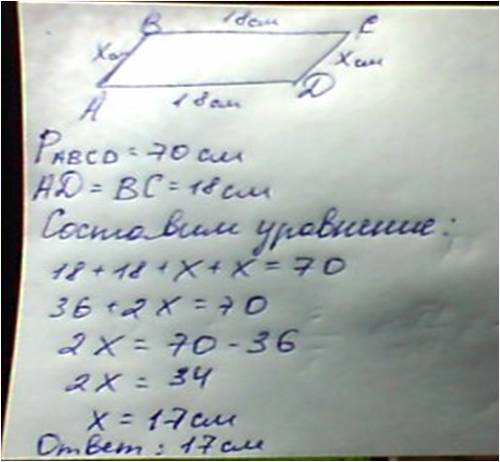 B 18см C
Xсм Xсм
A 18см D
PABCD = 70 см
AD = BC = 18 см
Составим уравнение:
18 + 18 + X + X = 70
36 + 2X = 70
2X = 70 - 36
2X = 34
X = 17 см
Ответ: 17 см